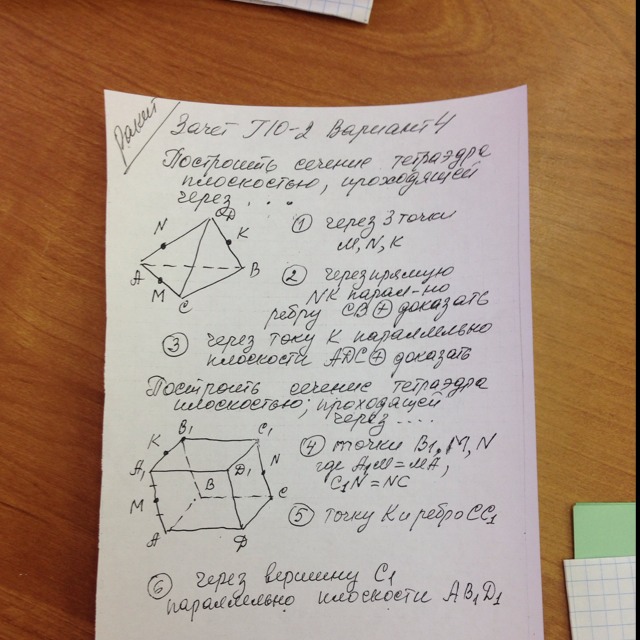 Ракит
Зачет Г10-2 Вариант 4
Построить сечение тетраэдра
плоскостью, проходящей
через . . .
D
N
K
A
B
M
C
① через 3 точки
M, N, K
② через прямую
NK парал-но
ребру CB ⊕ доказать
③ через току K параллельно
плоскости ADC ⊕ доказать
Построить сечение тетраэдра
плоскостью; проходящей
через ....
B1
C1
K
A1
D1
N
B
M
C
A
D
④ точки B1, M, N
где A1M=MA,
C1N=NC
⑤ точку K и ребро CC1
⑥ через вершину C1
параллельно плоскости AB1D1